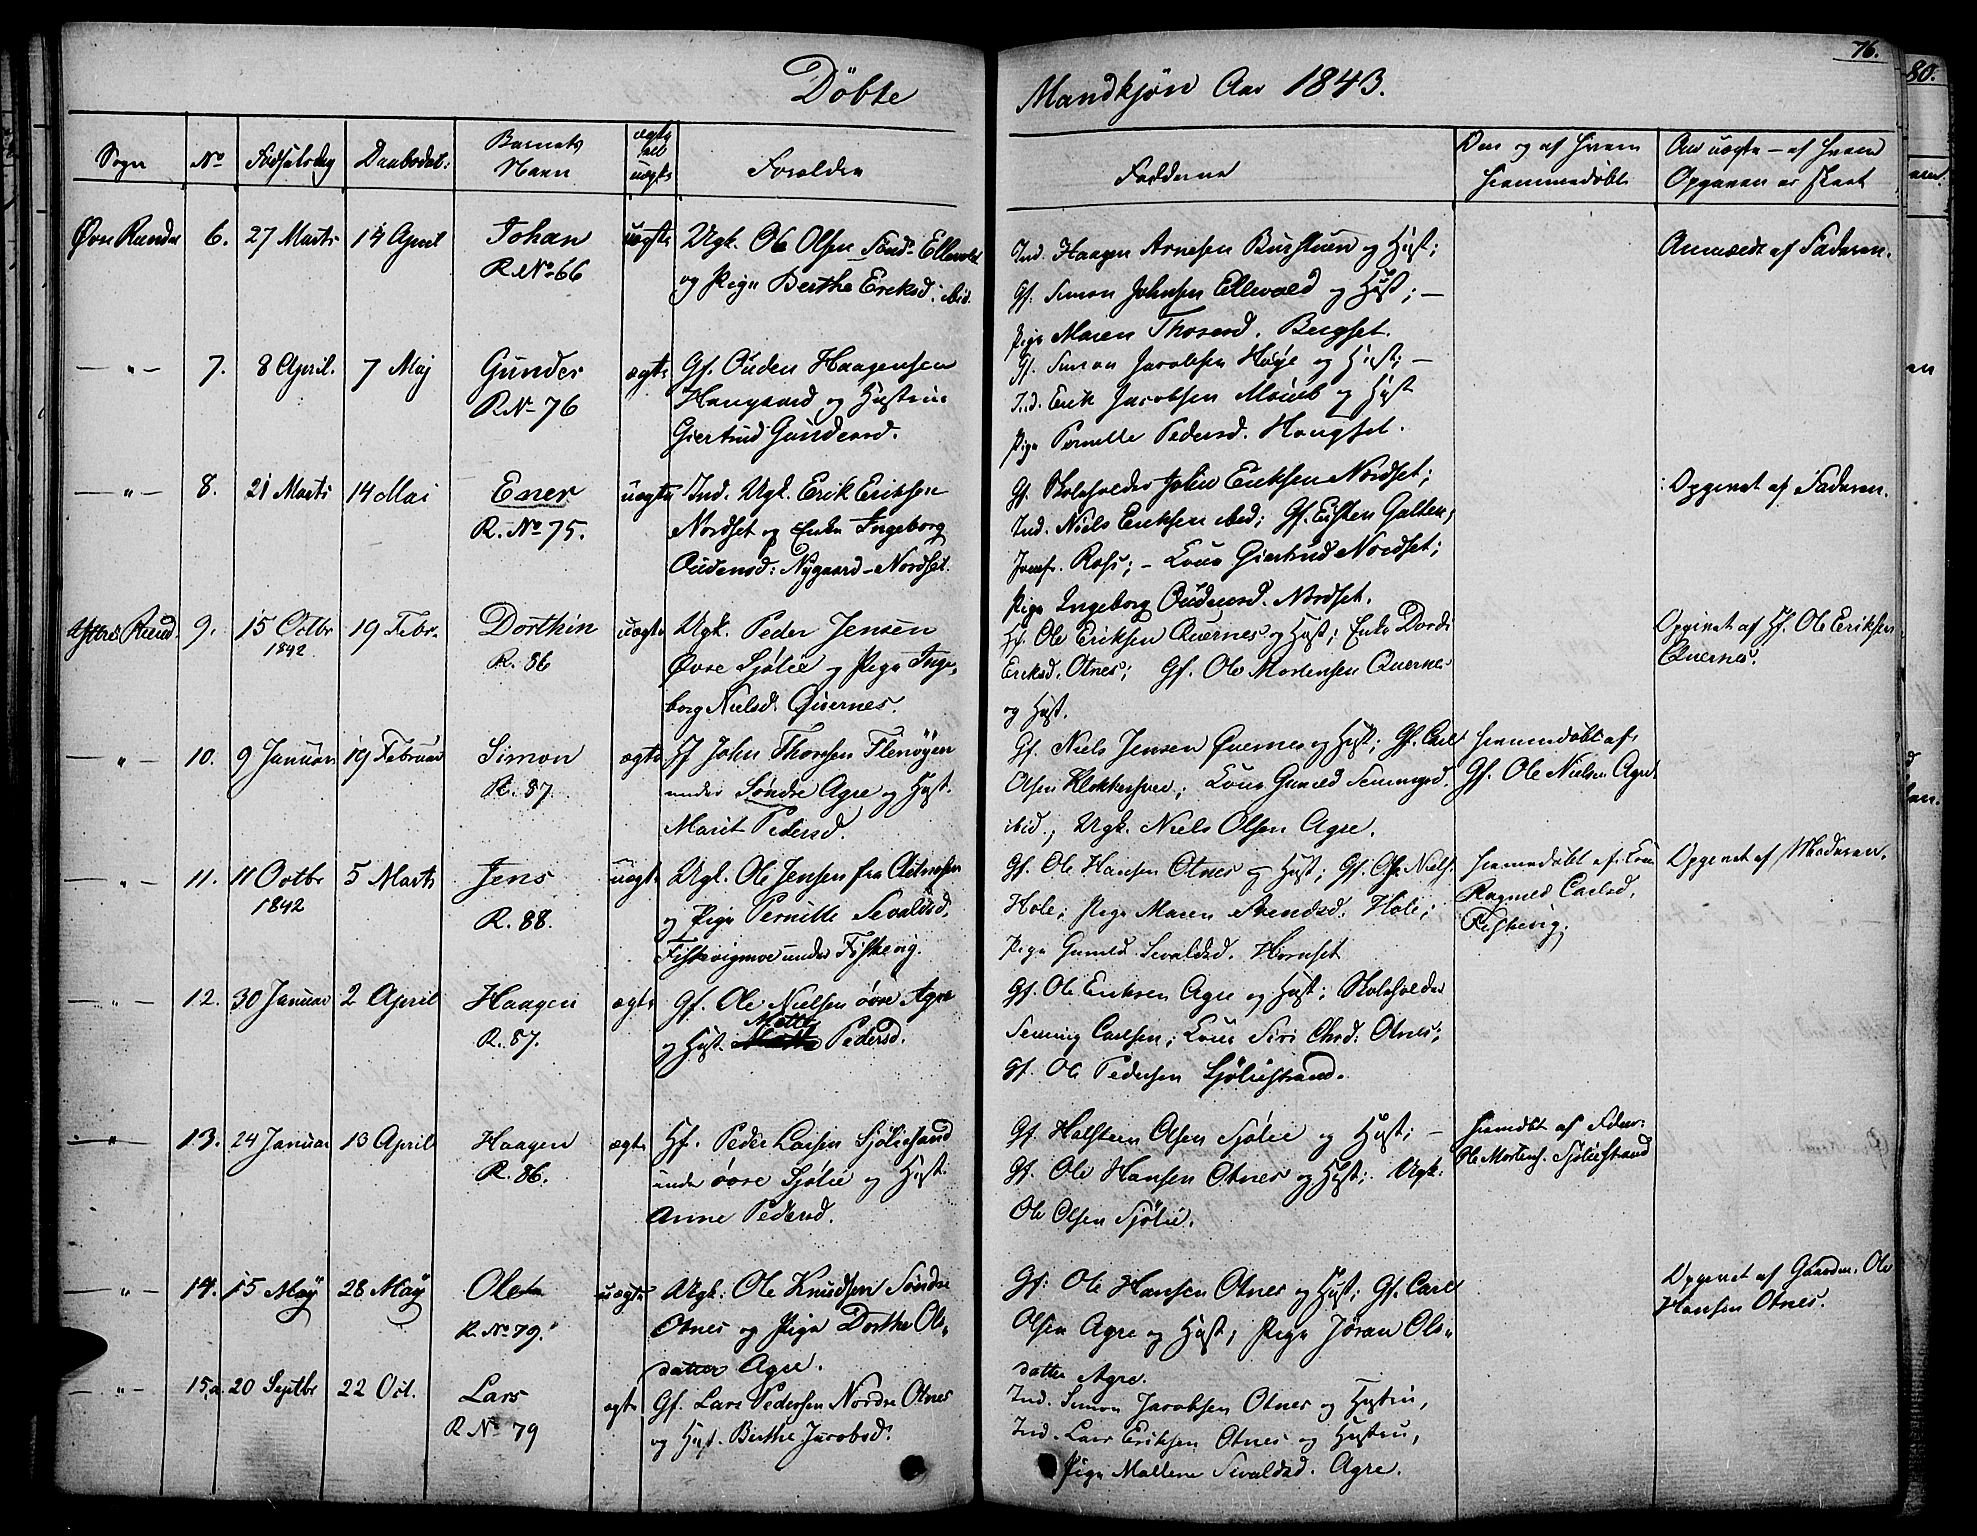 76.
80.
Döbte Mandkjøn Aar 1843.
Sogn No Födselsdag Daabsdat: Barnets Navn ægte ell uægte Forældre Fadderne Om og af hvem hjemmedöbt Om uægte – af hvem Opgaven er skeet
Øvre Rendal 6. 27 Marts 14 April Johan R. No 66 uægte
Ugk. Ole Olsen Sönd. Ellevold
og Pige Berthe Eriksd. ibid.
Ind. Haagen Arnesen Burstuen og Hust;
Gf. Simon Johnsen Ellevold og Hust; –
Pige Maren Thorsd. Bergset.
Anmeldt af Faderen.
— " — 7. 8 April. 7 Maj Gunder R No 76 ægte
Gf. Ouden Haagensen
Haugaard og Hustrue
Giertrud Gundersd.
Gf. Simon Jacobsen Høye og Hust; –
Ind. Erik Jacobsen Moueb og Hust
Pige Pernille Pedersd. Haugset.
— " — 8. 21 Marts 14 Mai Ener R. No 75. uægte
Ind. Ugk. Erik Eriksen
Nordset og Enke Ingeborg
Oudensd: Nygaard – Nordset.
Gf. Skoleholder John Eriksen Nordset;
Ind. Niels Eriksen ibid; Gf. Eisten Galten,
Jomfr. Ross; – Kone Giertrud Nordset;
Pige Ingeborg Oudensd. Nordset.
Opgivet af Faderen.
Yttre Rend. 9. 15 Octbr 1842 19 Febr. Dorthin R. 86 uægte
Ugk. Peder Jensen
Øvre Sjølie og Pige Inge-
borg Nielsd. Qvernes.
Hf. Ole Eriksen Qvernes og Hust; Enke Dordi
Eriksd. Otnes; Gf. Ole Mortensen Qvernes
og Hust.
Opgivet af Hf. Ole Eriksen
Qvernes.
— " — 10. 9 Januar 19 Februar Simon R. 87. ægte
Hf John Thorsen Flenøyen
under Søndre Agre og Hust.
Marit Pedersd.
Gf. Niels Jensen Qvernes og Hust; Gf. Carl
Olsen Klokkerhuee; Kone Gunild Semmingsd.
ibid.; Ugk. Niels Olsen Agre.
hjemmedöbt af
Gf. Ole Nielsen Agre
— " — 11. 11 Octbr 1842 5 Marts Jens R. 88. uægte
Ugk. Ole Jensen fra
og Pige Pernille Sevaldsd.
Fiskevigmoe under Fiskevig.
Gf. Ole Hansen Otnes og Hust; Gf. Ole Niels.
Hole; Pige Maren Svendsd. Hole;
Pige Gunild Sevaldsd. Hornset
hjemmedöbt af Kone
Ragnild Carlsd.
Fiskevig.
Opgivet af Moderen.
— " — 12. 30 Januar 2 April Haagen R. 87. ægte
Gf. Ole Nielsen övre Agre
og Hust. Mette Pedersd.
Gf. Ole Eriksen Agre og Hust; Skoleholder
Semming Carlsen; Kone Siri Olsd. Otnes;
Gf. Ole Pedersen Sjøliestrand.
— " — 13. 24 Januar 13 April Haagen R. 86. ægte
Hf. Peder Larsen Sjøliesand
under övre Sjølie og Hust.
Anne Pedersd.
Gf. Halsteen Olsen Sjølie og Hust; –
Gf. Ole Hansen Otnes og Hust; Ugk.
Ole Olsen Sjölie.
hjemdbt af
Ole Mortens. Sjöliestrand
— " — 14. 15 Maÿ 28 Maÿ Ole R. No 79. uægte
Ugk: Ole Knudsen Søndre
Otnes og Pige Dorthe Ols-
datter Agre.
Gf: Ole Hansen Otnes og Hust; Gf. Carl
Olsen Agre og Hust; Pige Jøran Ols-
datter Agre.
Opgivet af Gaardm. Ole
Hansen Otnes.
— " — 15.a 20 Septbr 22 Oct. Lars R No 79 ægte
Gf. Lars Pedersen Nordre Otnes
og Hust. Berthe Jacobsd:
Ind. Simon Jacobsen Otnes og Hustru,
Ind. Lars Eriksen Otnes og Hustru,
Pige Mallene Sevaldsd. Agre.